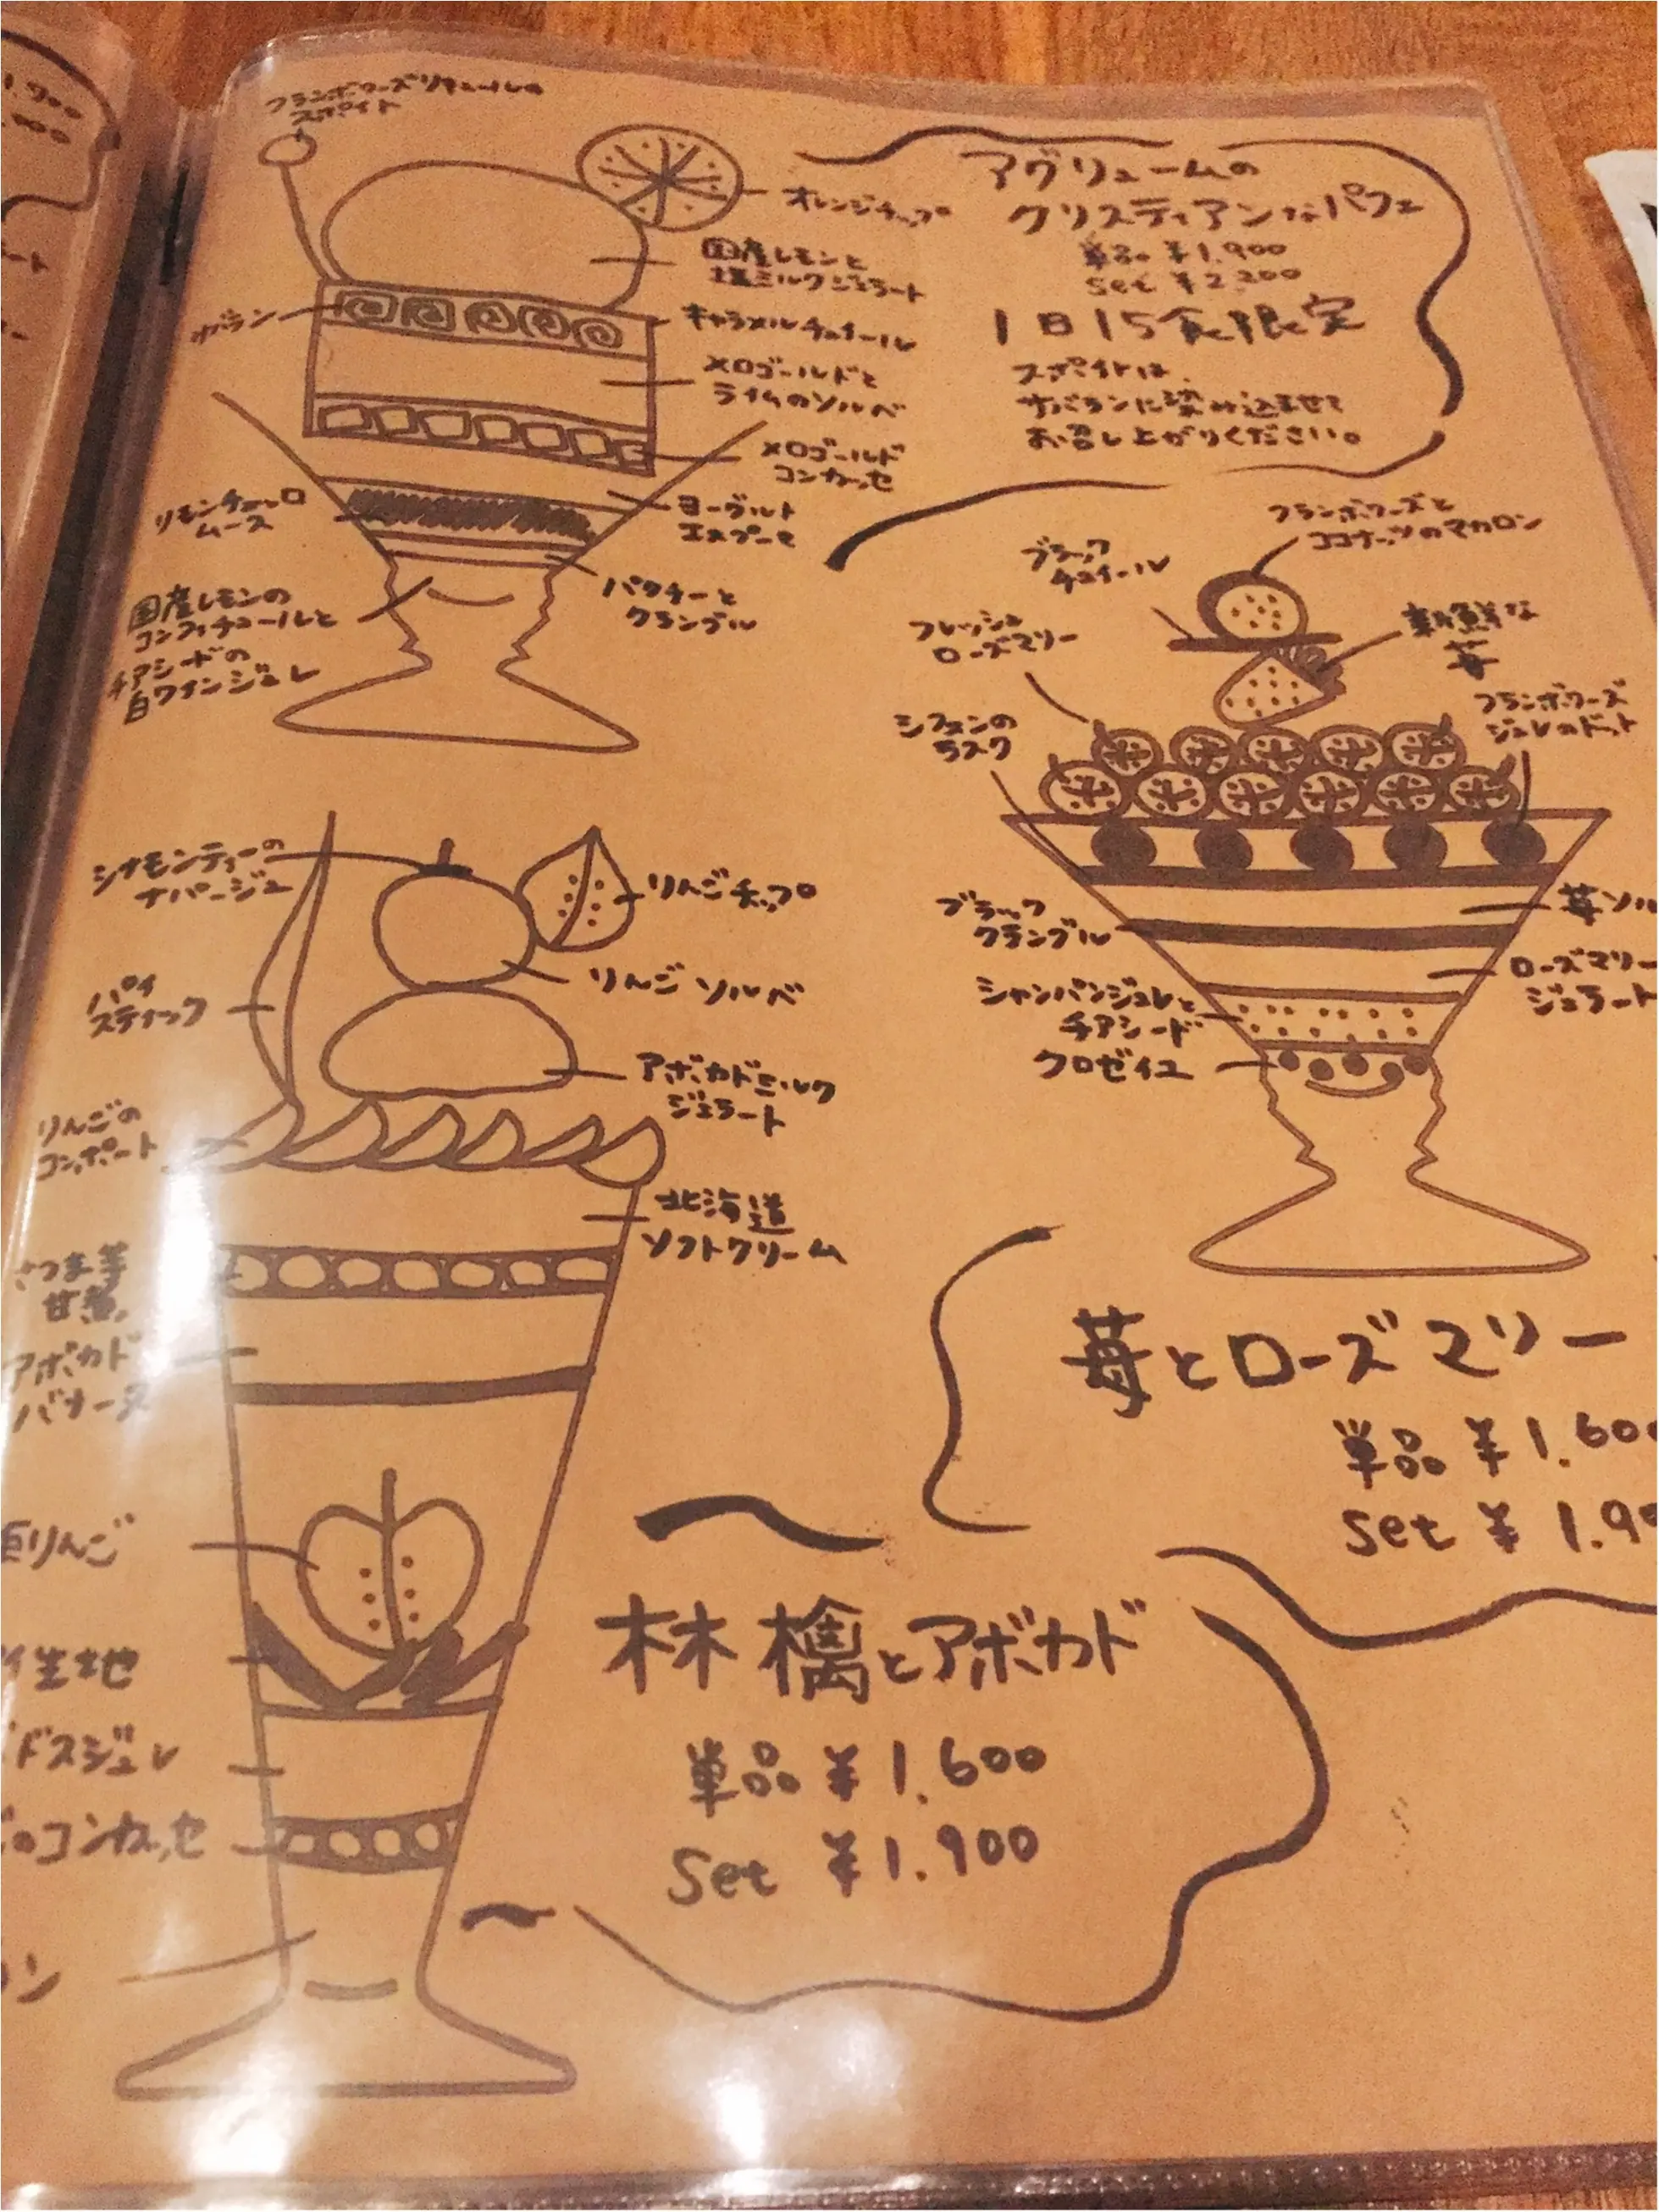 フランボワーズリキュールの
スポイト
オレンジチップ
国産レモンと
塩ミルクジェラート
サバラン
キャラメルチュイール
メロゴールドと
ライムのソルベ
メロゴールド
コンカッセ
リモンチェッロ
ムース
ヨーグルト
エスプーマ
パクチーと
クランブル
国産レモンの
コンフィチュールと
チアシードの
白ワインジュレ
アグリュームの
クリスティアンなパフェ
単品 ¥1.900
set ¥2.200
1日15食限定
スポイトは、
サバランに染み込ませて
お召し上がりください。
フランボワーズと
ココナッツのマカロン
ブラック
チュイール
フレッシュ
ローズマリー
新鮮な
苺
シフォンの
ラスク
フランボワーズ
ジュレのドット
ブラック
クランブル
苺ソル
ローズマリー
ジェラート
シャンパンジュレと
チアシード
クロゼイユ
苺とローズマリー
単品 ¥1.600
set ¥1.90
シナモンティーの
ナパージュ
りんごチップ
りんごソルベ
パイ
スティック
アボカドミルク
ジェラート
りんごの
コンポート
北海道
ソフトクリーム
さつま芋
甘煮
アボカド
バナーヌ
りんご
生地
ドスジュレ
のコンカッセ
ン
林檎とアボカド
単品 ¥1.600
set ¥1.900